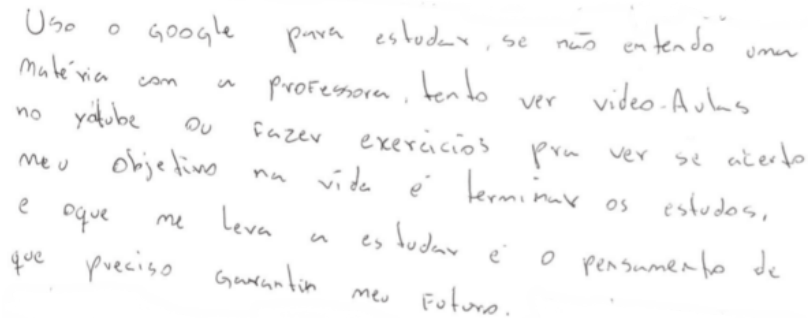 Uso o Google para estudar, se não entendo uma
matéria com a professora, tento ver video-Aulas
no yotube ou fazer exercícios pra ver se acerto
meu objetivo na vida é terminar os estudos,
e oque me leva a estudar é o pensamento de
que preciso garantir meu futuro.